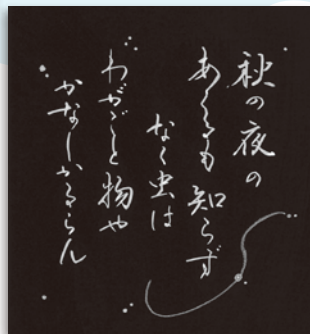 秋の夜の
あくるも知らず
なく虫は
わがごと物や
かなしかるらん